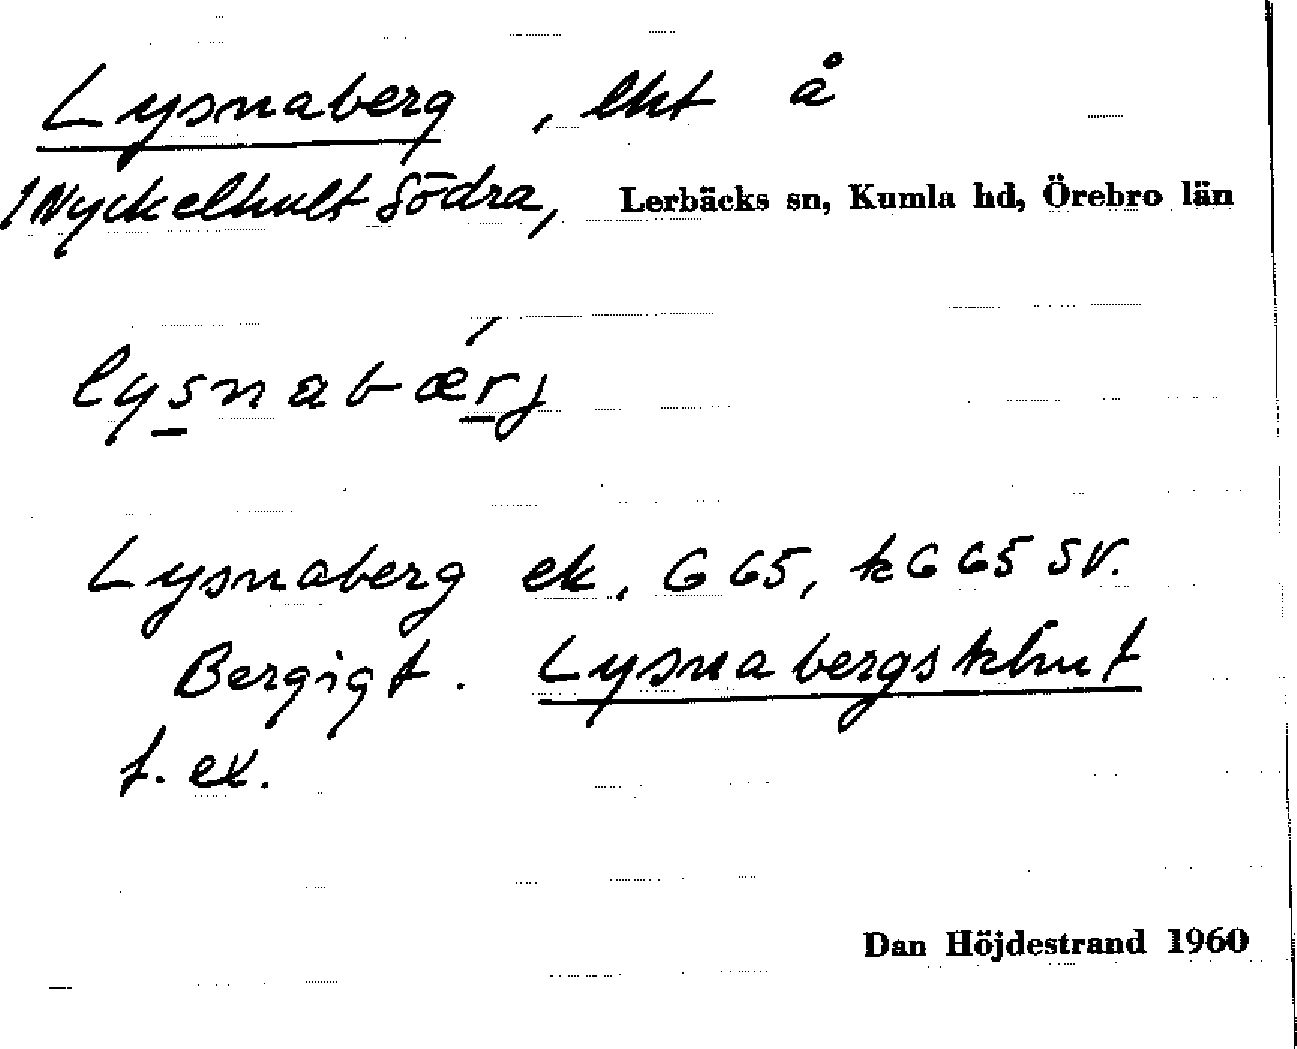 Lysnaberg, lht å
1 Nyckelhult Södra, Lerbäcks sn, Kumla hd, Örebro län
lysnabǽrj
Lysnaberg ek. G 65, kG 65 SV.
Bergigt. Lysnabergsklint
t. ex.
Dan Höjdestrand 1960